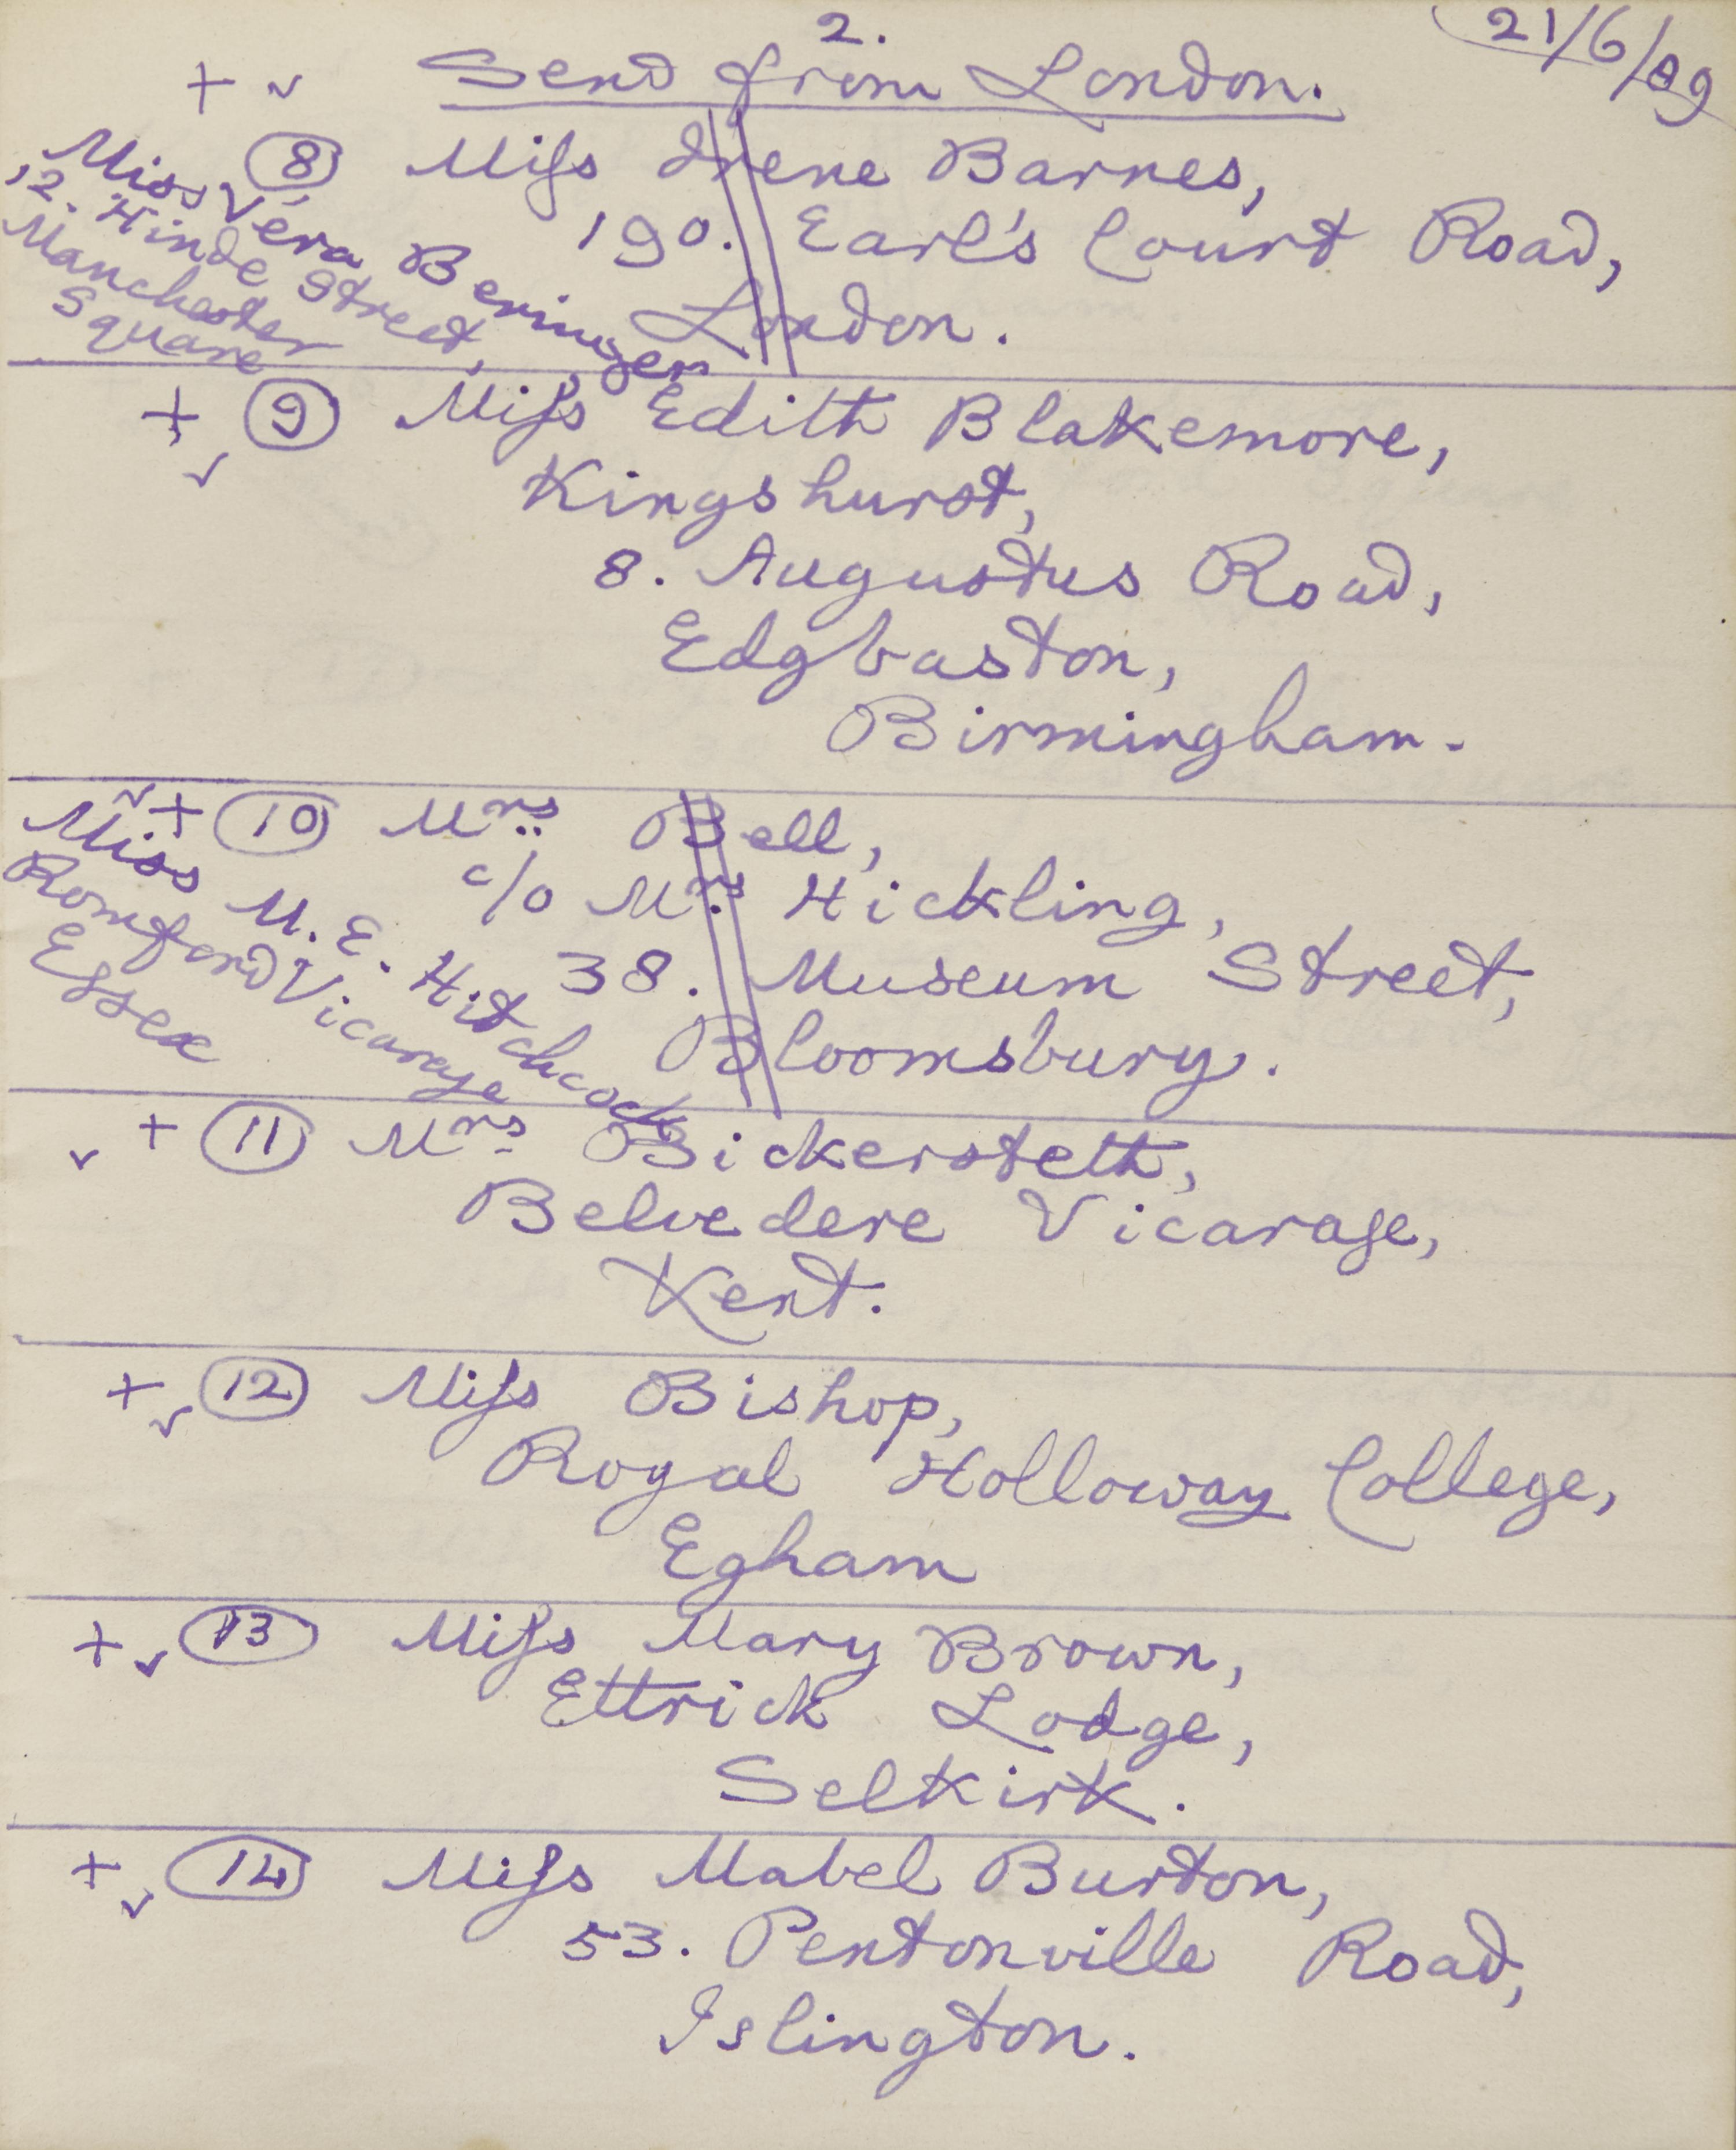 2.
21/6/89
Send from London.
+ ✓
⑧ Miſs Irene Barnes,
190. Earl's Court Road,
London.
Miss Vera Beringer
12. Hinde Street,
Manchester
Square
+ ✓ ⑨ Miſs Edith Blakemore,
Kingshurst,
8. Augustus Road,
Edgbaston,
Birmingham.
✓ + ⑩ Mrs Bell,
c/o Mrs Hickling,
38. Museum Street,
Bloomsbury.
Miss M. E. Hitchcock
Romford Vicarage
Essex
✓ + ⑪ Mrs Bickersteth,
Belvedere Vicarage,
Kent.
+ ✓ ⑫ Miſs Bishop,
Royal Holloway College,
Egham
+ ✓ ⑬ Miſs Mary Brown,
Ettrick Lodge,
Selkirk.
+ ✓ ⑭ Miſs Mabel Burton,
53. Pentonville Road,
Islington.